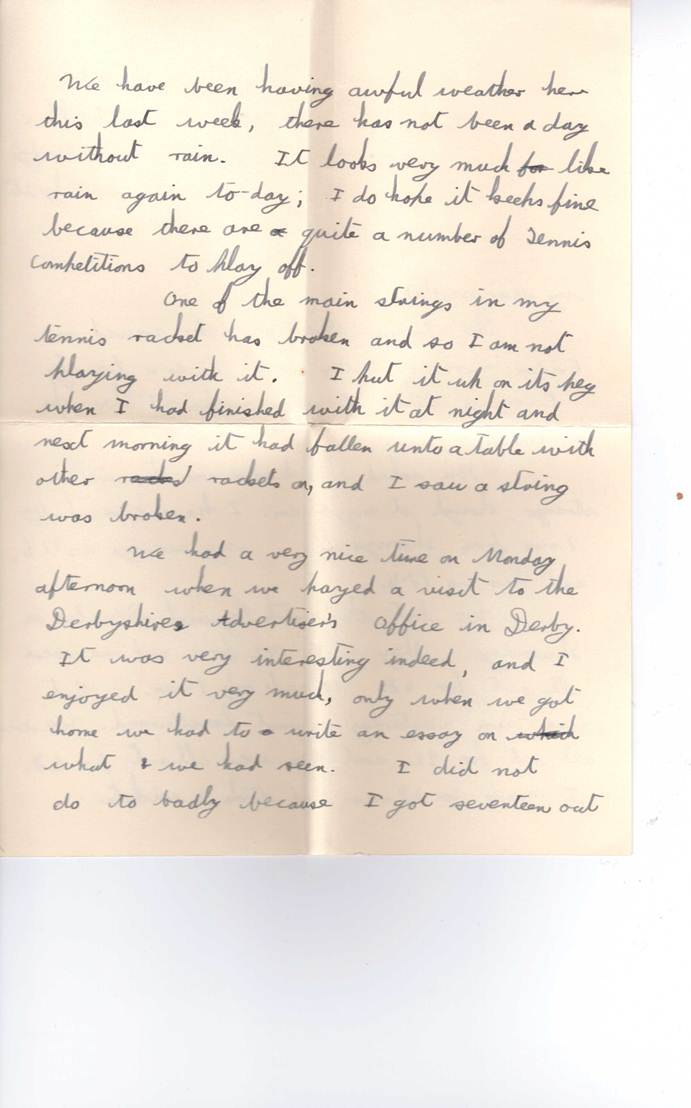 We have been having awful weather here
this last week, there has not been a day
without rain. It looks very much for like
rain again to-day; I do hope it keeps fine
because there are a quite a number of Tennis
Competitions to play off.
One of the main strings in my
tennis racket has broken and so I am not
playing with it. I put it up on its peg
when I had finished with it at night and
next morning it had fallen unto a table with
other rackets on, and I saw a string
was broken.
We had a very nice time on Monday
afternoon when we payed a visit to the
Derbyshires Advertiser's Office in Derby.
It was very interesting indeed, and I
enjoyed it very much, only when we got
home we had to a write an essay on which
what we had seen. I did not
do to badly because I got seventeen out